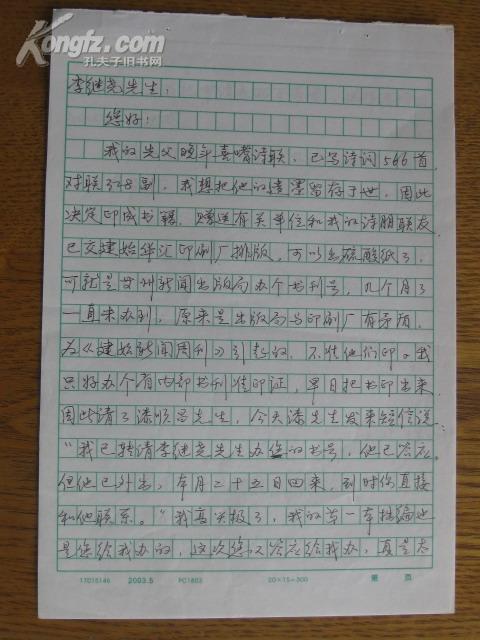 Kongfz.com
孔夫子旧书网
李继尧先生：
您好！
我的先父晚年喜嗜诗联，已写诗词566首，
对联328副，我想把他的遗墨留存于世，因此
决定印成书籍，赠送有关单位和我的诗朋联友
已交建始华汇印刷厂排版，可以出硫酸纸了，
可就是女州新闻出版局办个书刊号，几个月了
一直未办到，原来是出版局与印刷厂有矛盾，
为《建始新闻周刊》引起的，不准他们印。我
只好办个有内部书刊准印证，早日把书印出来
因此请了漆顺昌先生，今天漆先生发来短信说
“我已转请李继尧先生办您的书号，他已答应。
但他已外出，本月二十五日回来，到时你直接
和他联系。”我高兴极了，我的第一本拙编也
是您给我办的，这次您又答应给我办，真是太
17C15146 2003.5 PC1603 20×15=300 第 页